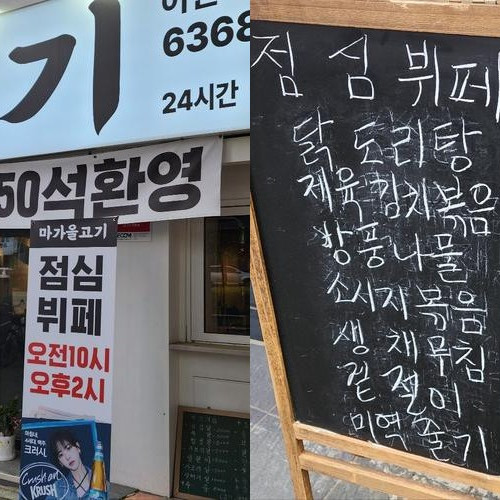 기
6368
24시간
50석환영
마가을고기
점심
뷔페
오전10시
오후2시
크러시
Crush on
KRUSH
점심뷔페
닭도리탕
제육김치볶음
방풍나물
소시지볶음
생채무침
겉절이
미역줄기